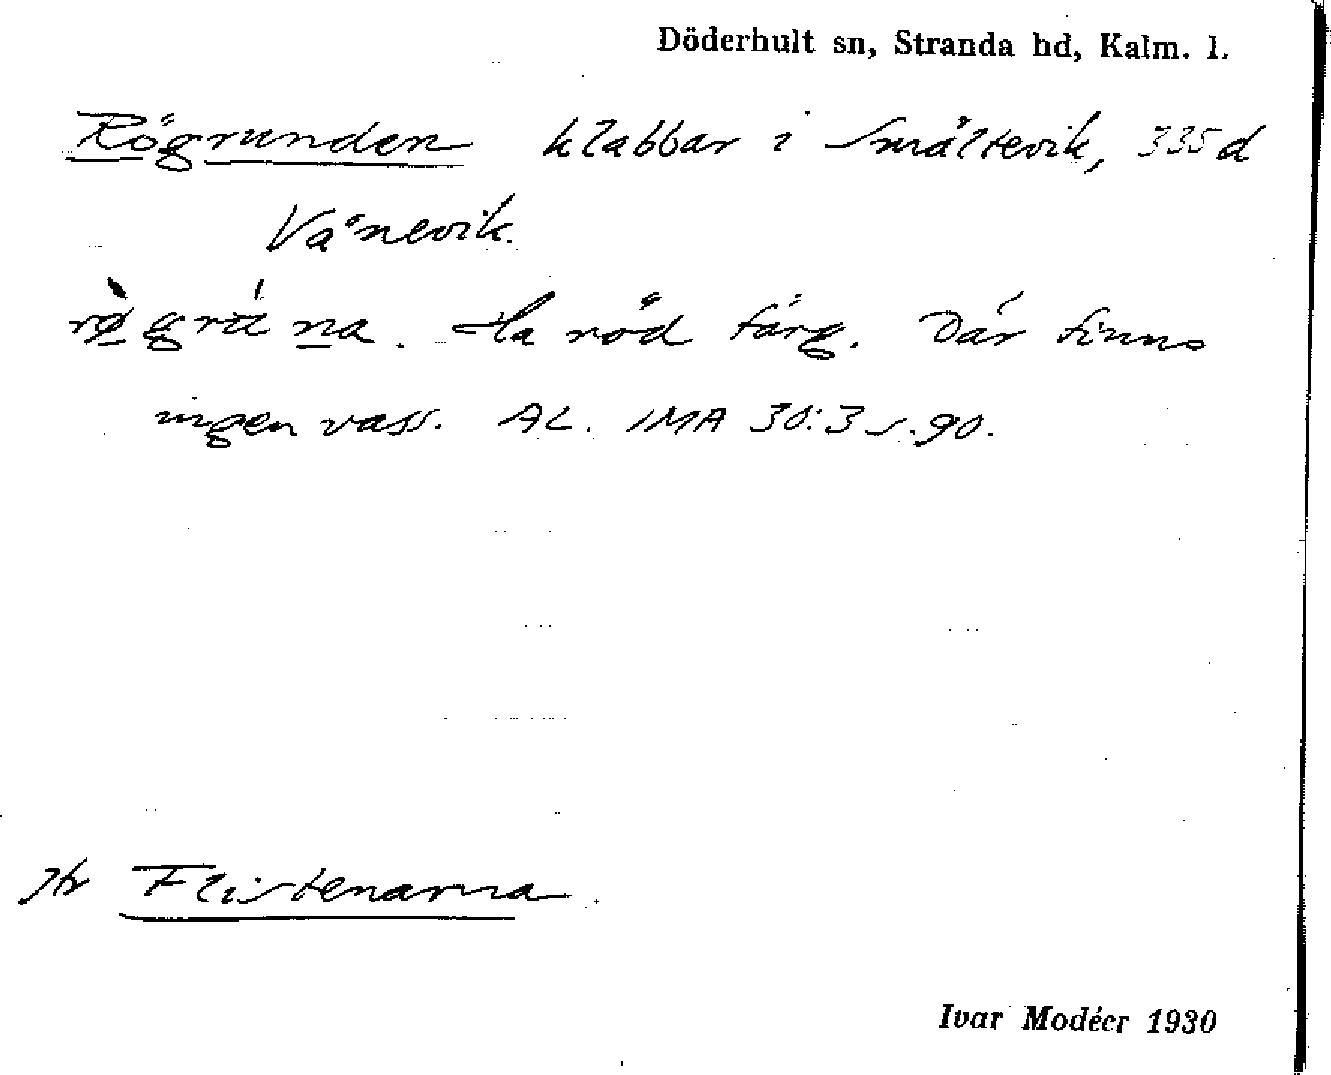 Döderhult sn, Stranda hd, Kalm. l.
Rögrunden klabbar i Smältevik, 335 d
Vånevik.
Ha röd färg. Där finns
ingen vass. AL. IMA 30:3 s. 90.
Jfr Flistenarna.
Ivar Modéer 1930